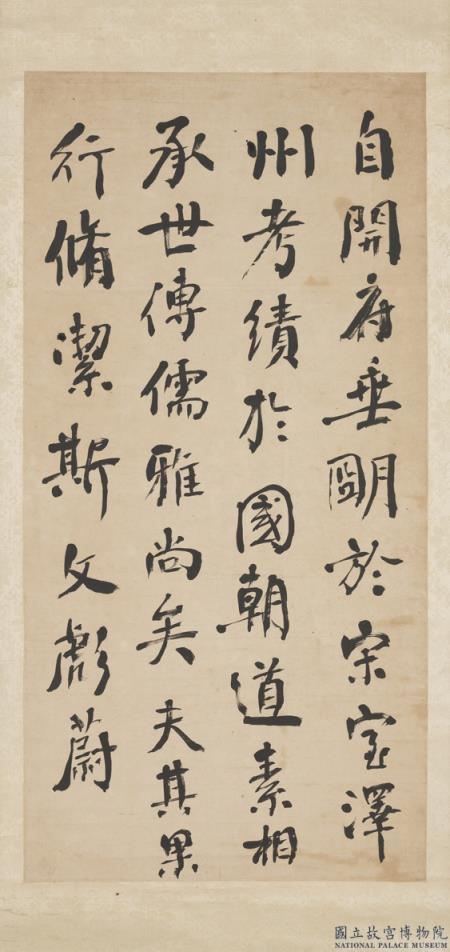 自開府垂朙於宋室澤
州考績於國朝道素相
承世傳儒雅尚矣夫其果
行脩潔斯文彪蔚
國立故宮博物院
NATIONAL PALACE MUSEUM